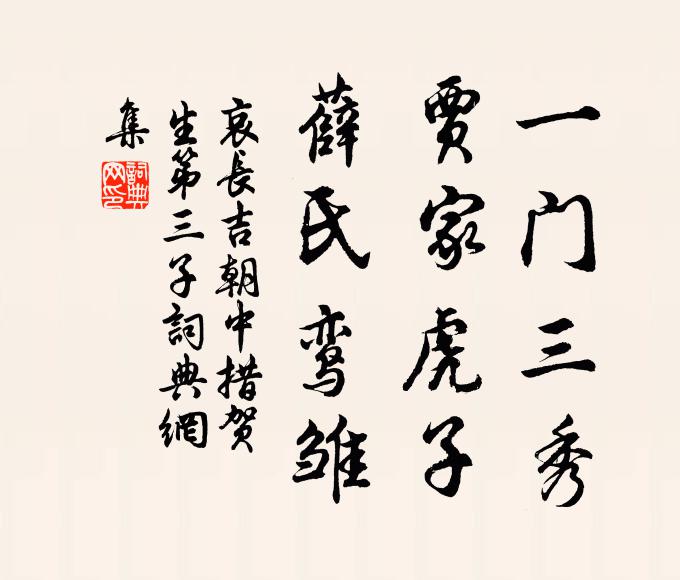 一门三秀
贾家虎子
薛氏鸾雏
哀長吉朝中措贺
生第三子詞典網
集
詞典網印